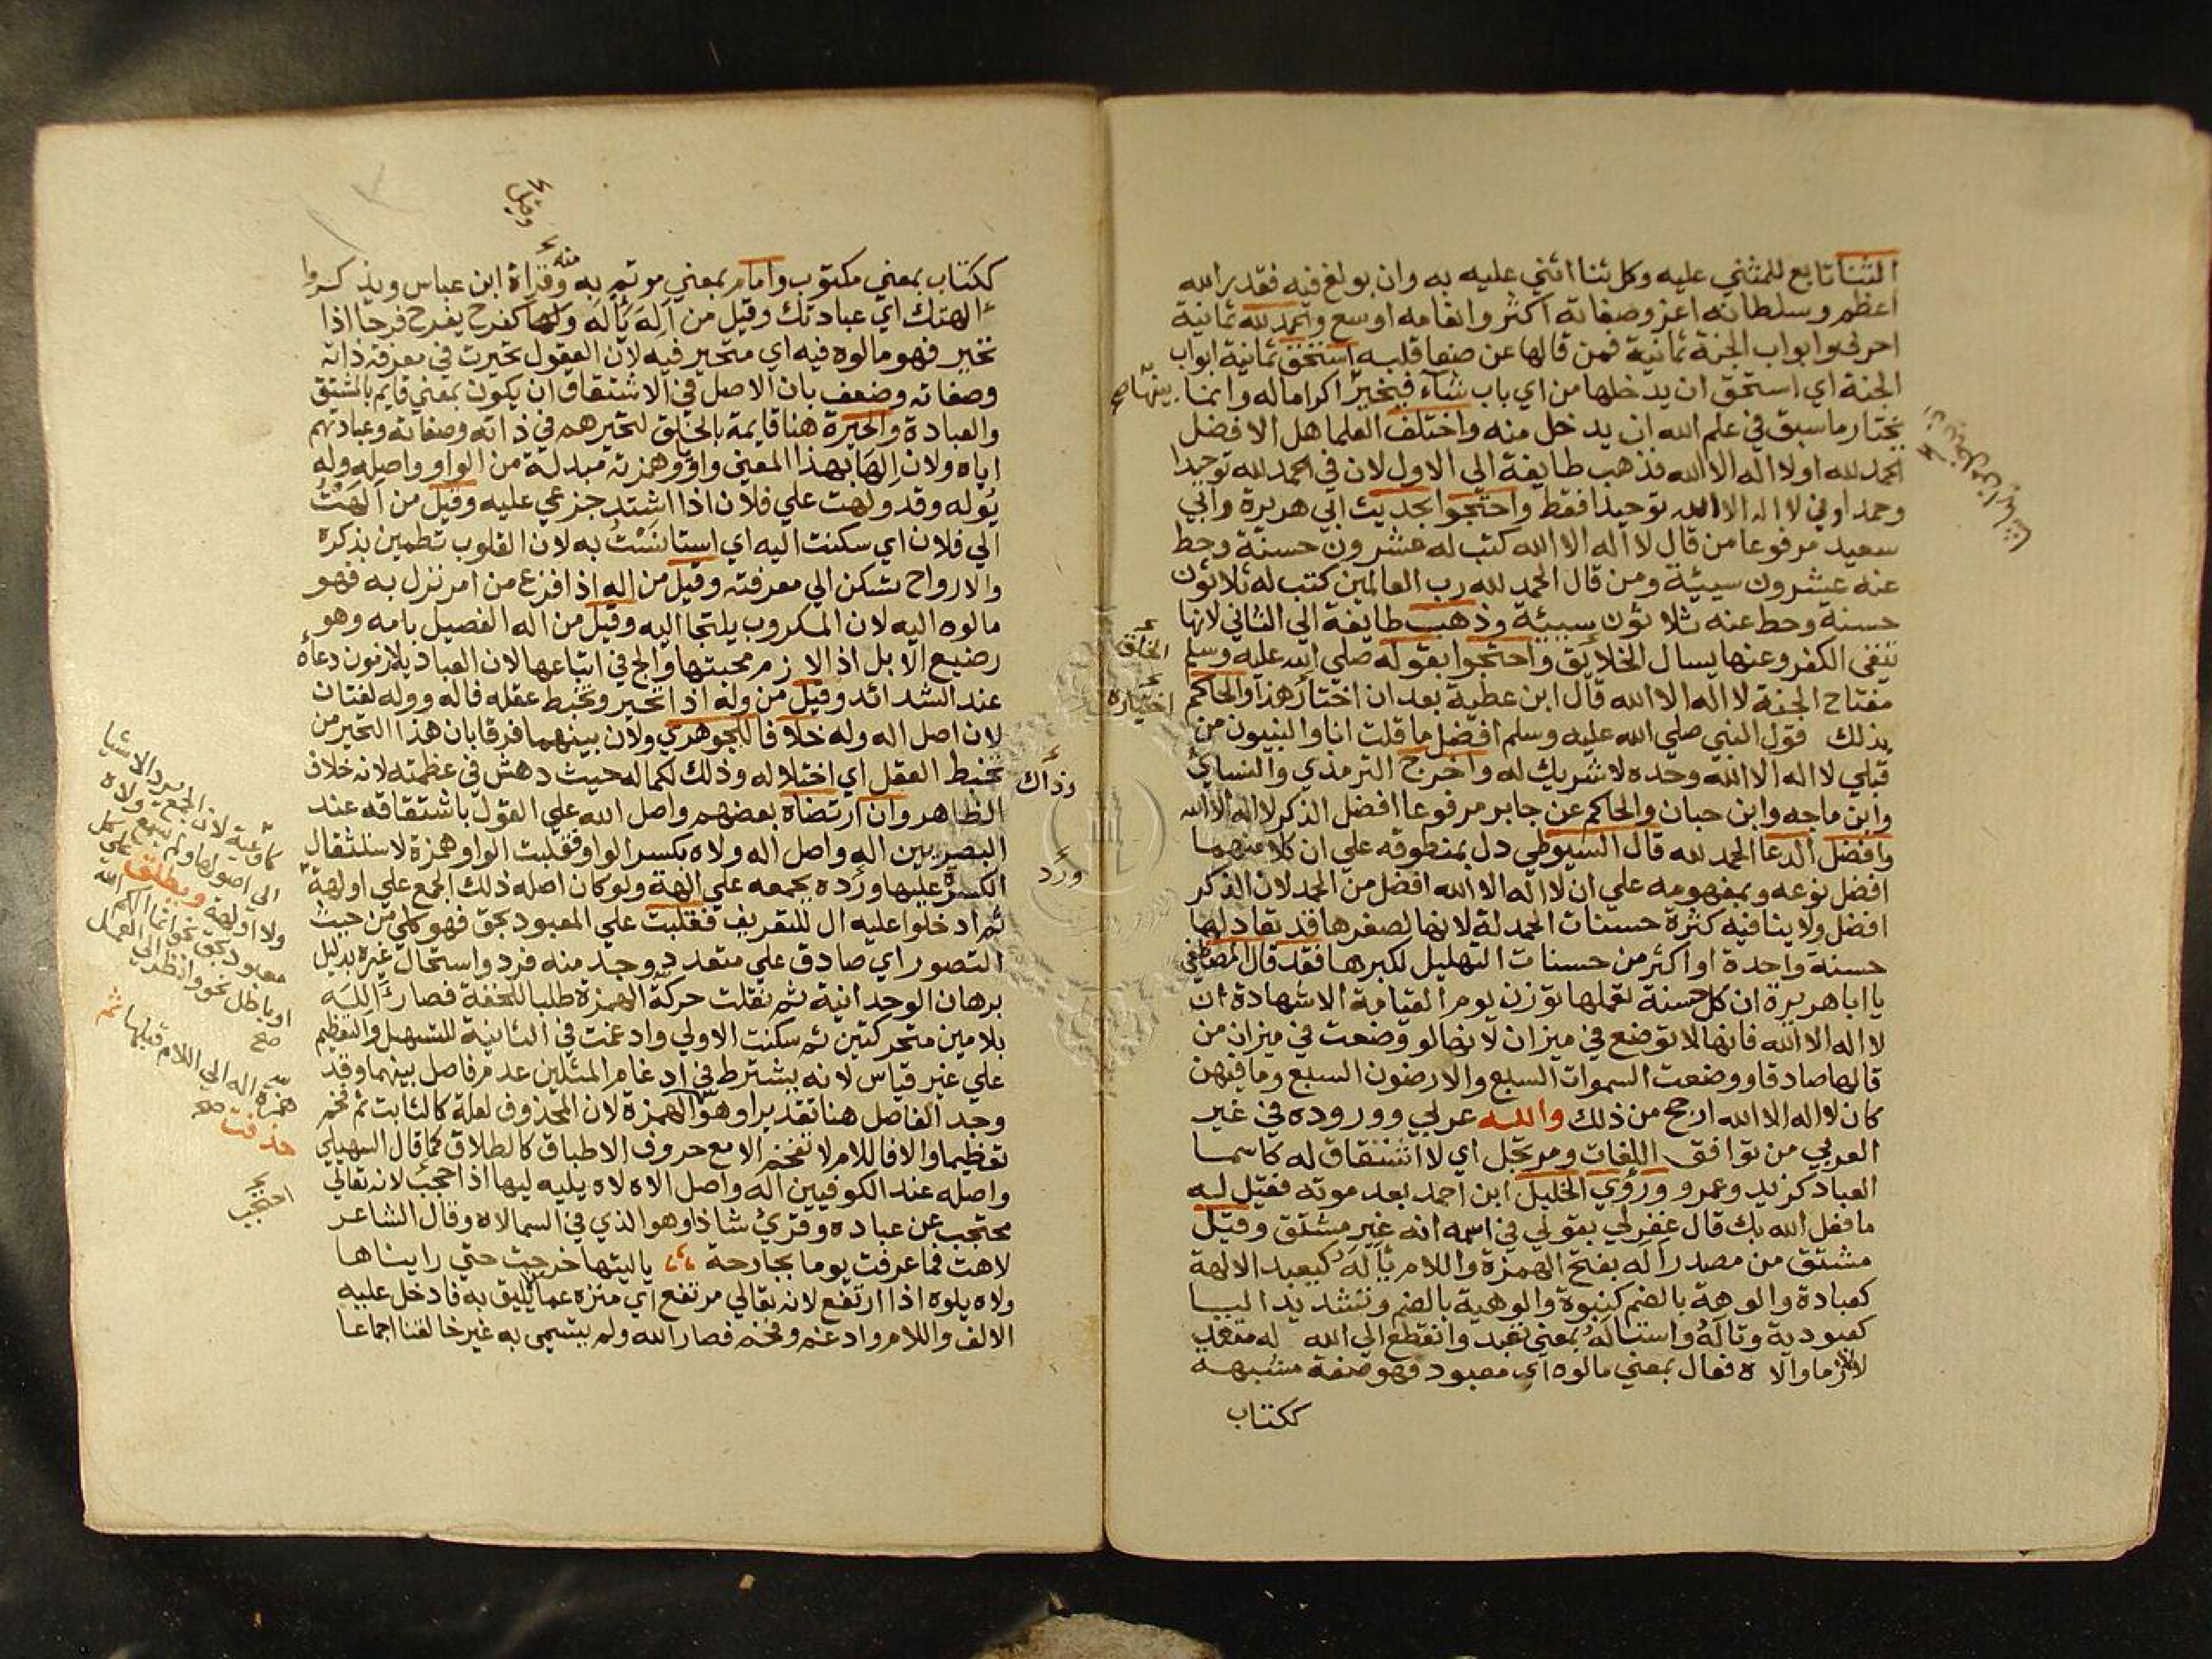 الثنا تابع للمثني عليه وكل ثنا اثني عليه به وان بولغ فيه فقدر الله
اعظم وسلطانه اعز وصفاته اكثر وانعامه اوسع والحمد لله ثمانية
احرف وابواب الجنة ثمانية فمن قالها عن صفا قلبه استحق ثمانية ابواب
الجنة اي استحق ان يدخلها من اي باب شآء فيخير اكراما له وانما
يختار ما سبق في علم الله ان يدخل منه واختلف العلما هل الافضل
الحمد لله او لا اله الا الله فذهب طايفة الي الاول لان في الحمد لله توحيدا
وحمدا وفي لا اله الا الله توحيدا فقط واحتجوا بحديث ابي هريرة وابي
سعيد مرفوعا من قال لا اله الا الله كتب له عشرون حسنة وحط
عنه عشرون سيئة ومن قال الحمد لله رب العالمين كتب له ثلاثون
حسنة وحط عنه ثلاثون سيئة وذهب طايفة الي الثاني لانها
تنفي الكفر وعنها يسال الخلائق واحتجوا بقوله صلي الله عليه وسلم
مفتاح الجنة لا اله الا الله قال ابن عطية بعد ان اختار هذا والحاكم
بذلك قول النبي صلي الله عليه وسلم افضل ما قلت انا والنبيون من
قبلي لا اله الا الله وحده لا شريك له واخرج الترمذي والنسائي
وابن ماجه وابن حبان والحاكم عن جابر مرفوعا افضل الذكر لا اله الا الله
وافضل الدعا الحمد لله قال السيوطي دل بمنطوقه علي ان كلا منهما
افضل نوعه وبمفهومه علي ان لا اله الا الله افضل من الحمد لان الذكر
افضل ولا ينافيه كثرة حسنات الحمدلة لانها لصغرها قد تعادلها
حسنة واحدة او اكثر من حسنات التهليل لكبرها فقد قال المصطفي
يا ابا هريرة ان كل حسنة تعملها توزن يوم القيامة الا شهادة ان
لا اله الا الله فانها لا توضع في ميزان لانها لو وضعت في ميزان من
قالها صادقا ووضعت السموات السبع والارضون السبع وما فيهن
كان لا اله الا الله ارجح من ذلك والله عربي ووروده في غير
العربي من توافق اللغات ومرتجل اي لا اشتقاق له كاسما
العباد كزيد وعمرو ورؤي الخليل ابن احمد بعد موته فقيل له
ما فعل الله بك قال غفر لي بقولي في اسمه انه غير مشتق وقيل
مشتق من مصدر اله بفتح الهمزة واللام يأله كيعبد الالهة
كعبادة والوهة بالضم كنبوة والوهية بالضم وتشديد اليا
كعبودية وتاله واستاله بمعني تعبد وانقطع الي الله له متعد
لا لازما والاه فعال بمعني مالوه اي معبود فهو صفة مشبهة
ككتاب
بينها صح
الخلق
اختياره
وقيل
منه
ككتاب بمعني مكتوب وامام بمعني موتم به وقراة ابن عباس ويذركوا
الهتك اي عبادتك وقيل من اله ياله والها كفرح يفرح فرحا اذا
تحير فهو مالوه فيه اي متحير فيه لان العقول تحيرت في معرفة ذاته
وصفاته وضعف بان الاصل في الاشتقاق ان يكون بمعني قايم بالمشتق
والعبادة والحيرة هنا قايمة بالخلق لتحيرهم في ذاته وصفاته وعبادتهم
اياه ولان الها بهذا المعني واوي وهمزته مبدلة من الواو واصله وله
يوله وقد ولهت علي فلان اذا اشتد جزعي عليه وقيل من الهت
الي فلان اي سكنت اليه اي استانست به لان القلوب تطمين بذكره
والارواح تسكن الي معرفته وقيل من اله اذا فزع من امر نزل به فهو
مالوه اليه لان المكروب يلتجا اليه وقيل من اله الفصيل بامه وهو
رضيع الابل اذا لازم محبتها والج في اتباعها لان العباد يلازمون دعاه
عند الشدائد وقيل من وله اذا تحير وتخبط عقله فاله ووله لغتان
لان اصل اله وله خلافا للجوهري ولان بينهما فرقا بان هذا التحير من
تخبط العقل اي اختلاله وذلك لكماله حيث دهش في عظمته لانه خلاف
الظاهر وان ارتضاه بعضهم واصل الله علي القول باشتقاقه عند
البصريين اله واصل اله ولاه بكسر الواو فقلبت الواو همزة لاستثقال
الكسرة عليها ورده بجمعه علي الهة ولو كان اصله ذلك الجمع علي اولهة
ثم ادخلوا عليه ال للتعريف فغلبت علي المعبود بحق فهو كلي من حيث
التصور اي صادق علي متعدد وجد منه فرد واستحال غيره بدليل
برهان الوحدانية ثم نقلت حركة الهمزة طلبا للخفة فصار اللله
بلامين متحركتين ثم سكنت الاولي وادغمت في الثانية للتسهيل والتعظيم
علي غير قياس لانه يشترط في ادغام المثلين عدم فاصل بينهما وقد
وجد الفاصل هنا تقديرا وهو الهمزة لان المحذوف لعلة كالثابت ثم فخم
تعظيما والا فاللام لا تفخم الا مع حروف الاطباق كالطلاق كما قال السهيلي
واصله عند الكوفيين اله واصل الاه لاه يليه ليها اذا احجب لانه تعالي
محتجب عن عباده وقرئ شاذا وهو الذي في السما لاه وقال الشاعر
لاهت فما عرفت يوما بجارحة ياليتها خرجت حتي رايناها
ولاه يلوه اذا ارتفع لانه تعالي مرتفع اي منزه عما يليق به فادخل عليه
الالف واللام وادغم وفخم فصار الله ولم يتسمي به غير خالقنا اجماعا
وذاك
ورد
كاوعية لان الجمع يرد الاشيا
الي اصولها ولم يسمع ولاه
ولا اولهة ويطلق علي كل
معبود بحق نحو انما الهكم الله
او باطل نحو وانظر الي العجل
صح
همزة اله الي اللام قبلها ثم
حذفت صح
احتجب